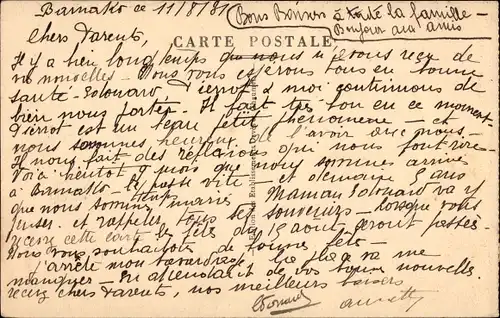 Bamako ce 11/8/31
Bons Baisers à toute la famille -
Bonjour aux amis
Chers Parents,
CARTE POSTALE
Il y a bien longtemps que nous n'avons reçu de
vos nouvelles - Nous vous espérons tous en bonne
santé - Edouard, Pierrot et moi continuons de
bien nous porter - Il fait très bon en ce moment
Pierrot est un beau petit phénomène - et
nous sommes heureux de l'avoir avec nous -
Il nous fait des réflexions qui nous font rire -
Voilà bientôt 9 mois que nous sommes arrivés
à Bamako - Le temps passe vite et demain 5 ans
que nous sommes mariés Maman Edouard va y
penser et rappeler tous ses souvenirs - Lorsque vous
recevrez cette carte les fêtes du 15 août seront passées
Nous vous souhaitons de bonnes fêtes -
J'arrête mon bavardage la place va me
manquer - En attendant de vos bonnes nouvelles
recevez chers Parents, nos meilleurs baisers
Edouard